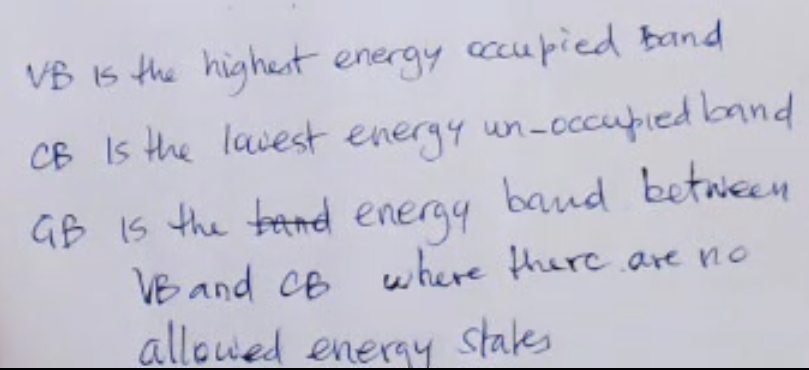 VB is the highest energy occupied band
CB is the lowest energy un-occupied band
GB is the band energy band between
VB and CB where there are no
allowed energy states